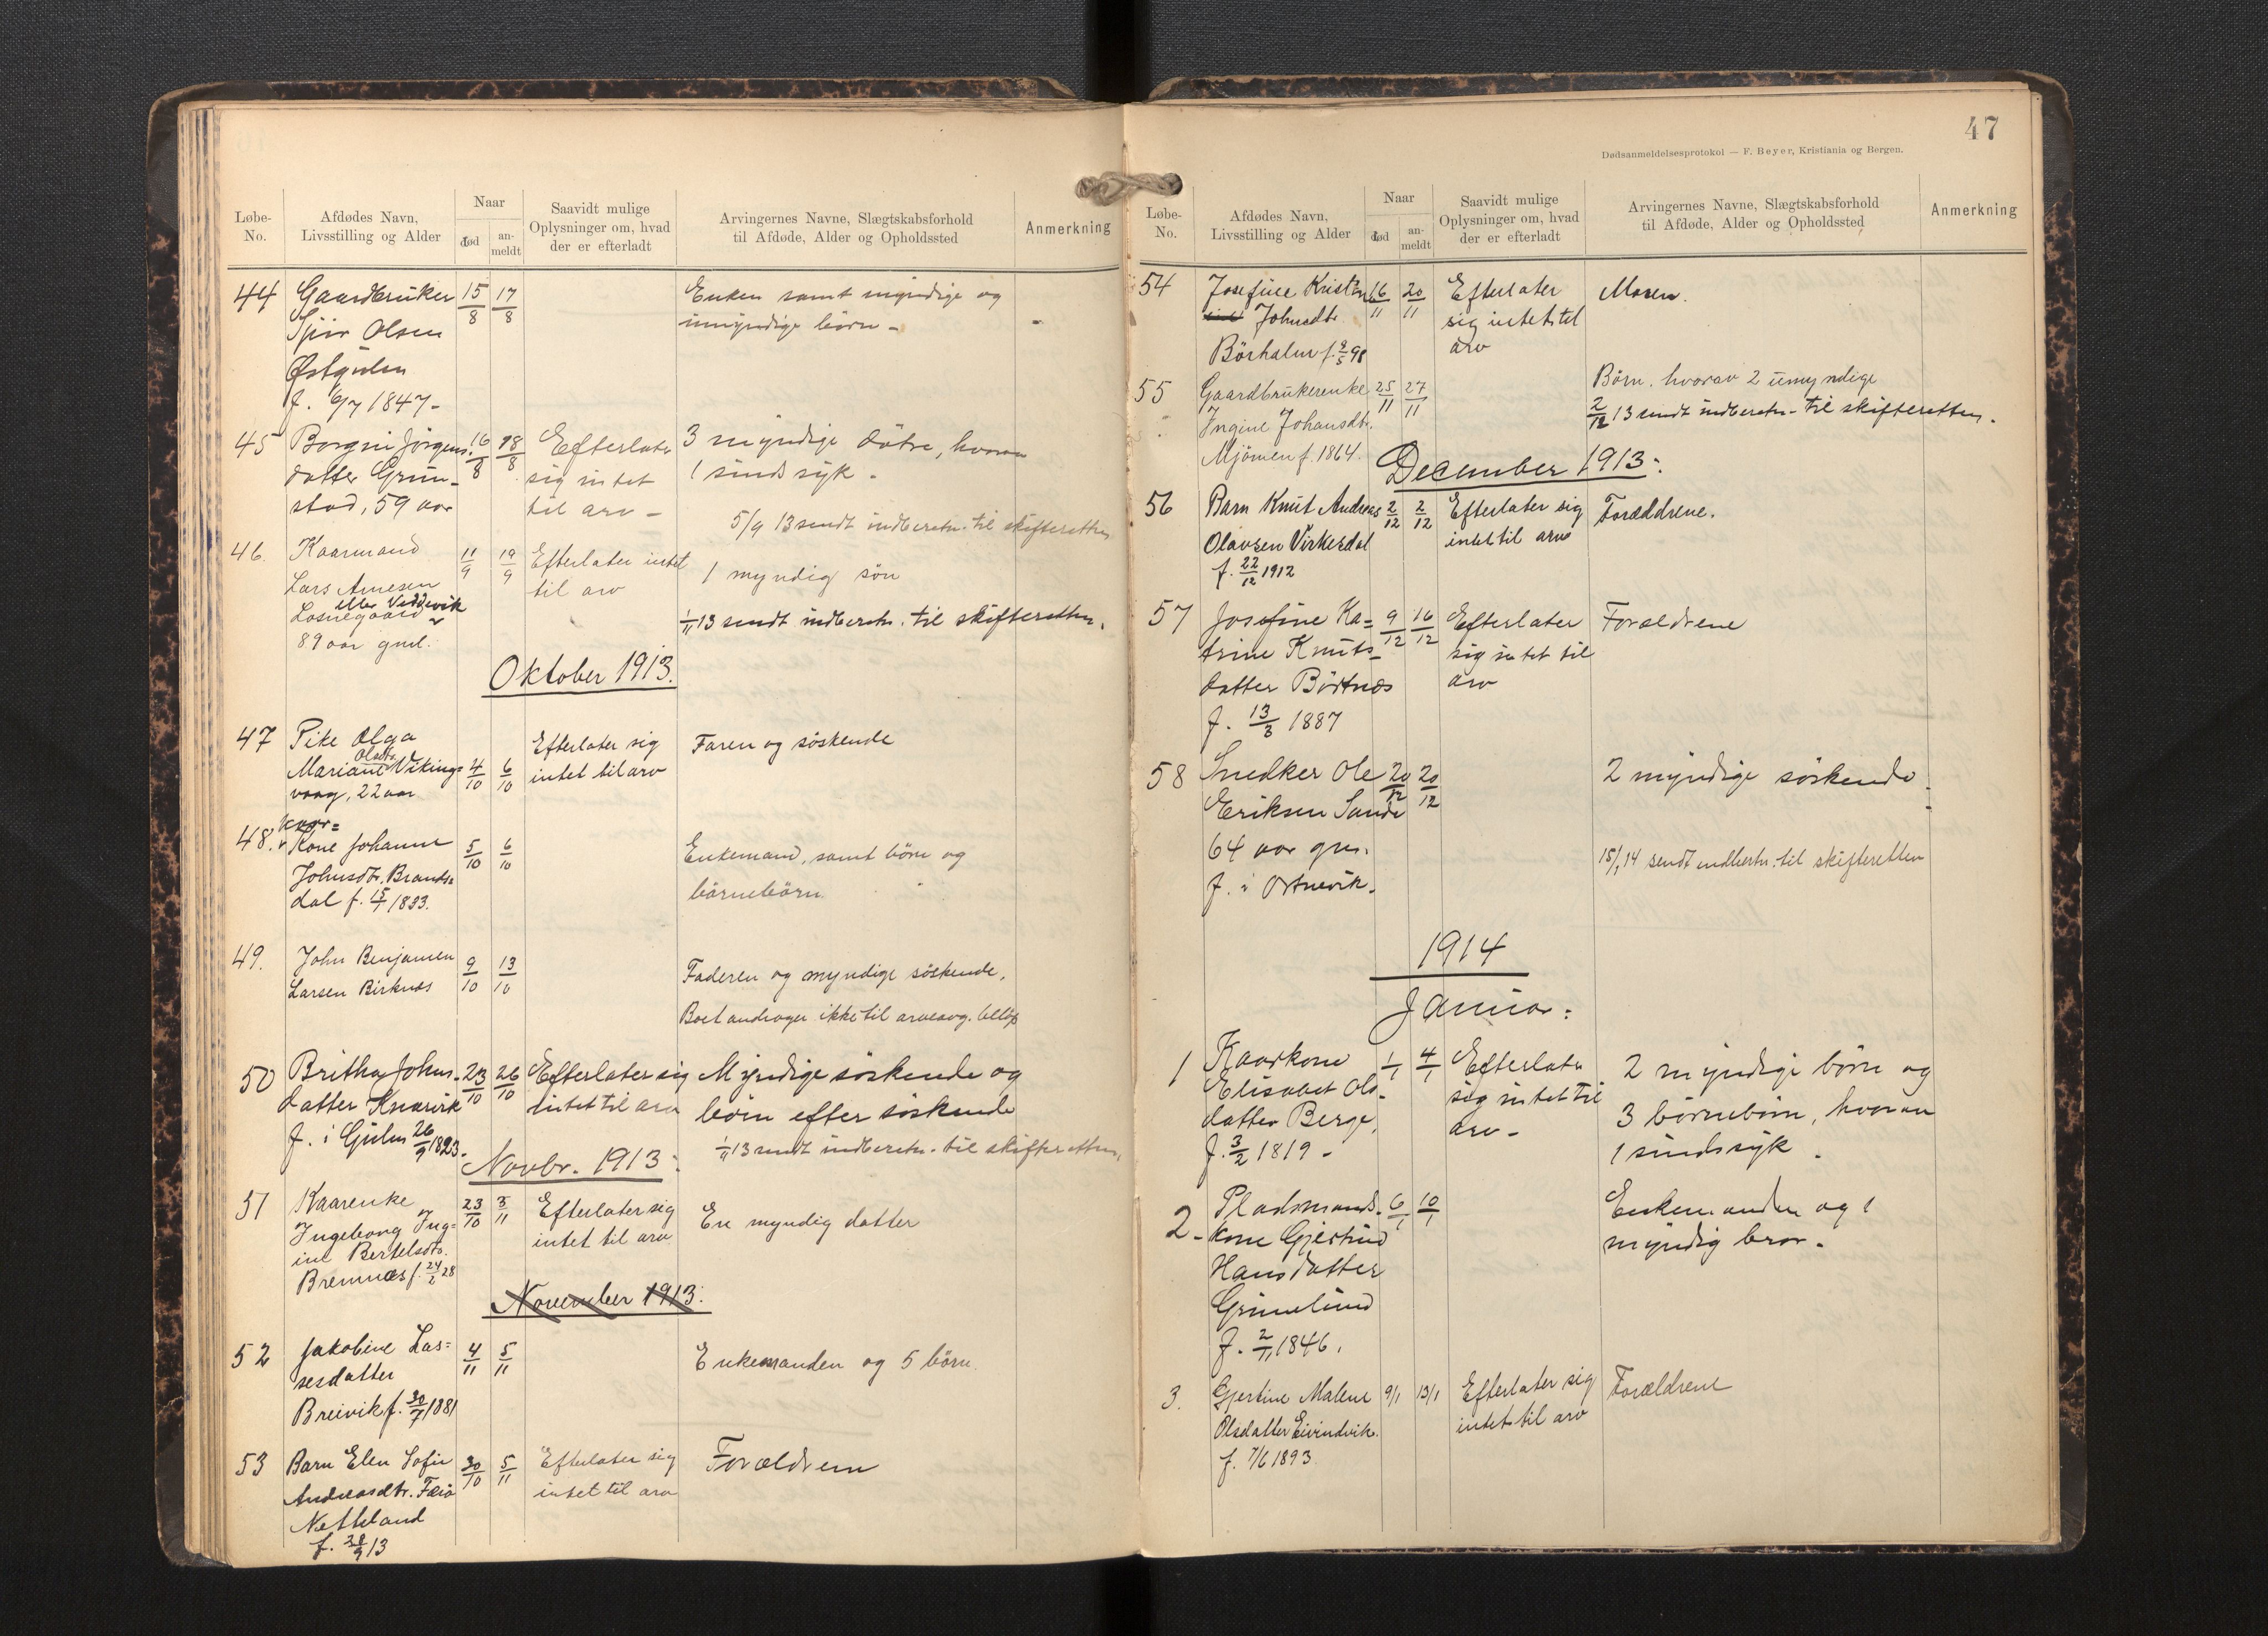 Løbe-No.
Afdødes Navn, Livsstilling og Alder
Naar
død
an-meldt
Saavidt mulige Oplysninger om, hvad der er efterladt
Arvingernes Navne, Slægtskabsforhold til Afdøde, Alder og Opholdssted
Anmerkning
44 Gaardbruker 15/8 17/8 Enken samt myndige og
Olsen umyndige börn -
Østgulen
f. 6/7 1847-
45 Borgni Jörgens- 16/8 18/8 Efterlater 3 myndige dötre, hvorav
datter Grin- sig intet 1 sindssyk -
stad, 59 aar til arv -
5/9 13 sendt indberetn. til skifteretten
46. Kaarmand 11/9 19/9 Efterlater intet
Lars Arnesen til arv 1 myndig sön
eller Veddevik
Losnegaard 1/11 13 sendt indberetn. til skifteretten.
89 aar gml.
Oktober 1913.
47 Pike Olga Efterlater sig Faren og söskende
Olsdtr
Mariane Viking- 4/10 6/10 intet til arv
vaag, 22 aar
Kaar=
48. Kone Johanne 5/10 6/10 Enkemand, samt börn og
Johnsdtr. Brands= börnebörn.
dal f. 15/1 1833.
49. John Benjamin 9/10 13/10 Faderen og myndige söskende,
Larsen Birknæs Boet andrager ikke til arveavg. belöp
50 Britha Johns- 23/10 26/10 Efterlater sig Myndige söskende og
datter Knarvik intet til arv börn efter söskende
f. i Gulen 26/9 1823. 1/11 13 sendt indberetn. til skifteretten.
Novbr. 1913:
51 Kaarenke 23/10 3/11 Efterlater sig En myndig datter
Ingeborg Ing= intet til arv
ine Bertelsdtr.
Bremnes f. 24/2 28
November 1913:
52 Jakobine Las= 4/11 5/11 Enkemanden og 5 börn.
sesdatter
Breivik f. 30/7 1881
53 Barn Elen Sofie 30/10 5/11 Efterlater sig Forældrene
Andreasdtr. intet til arv
Netteland
f. 28/9 13
47
Dødsanmeldelsesprotokol — F. Beyer, Kristiania og Bergen.
Løbe-No.
Afdødes Navn, Livsstilling og Alder
Naar
død
an-meldt
Saavidt mulige Oplysninger om, hvad der er efterladt
Arvingernes Navne, Slægtskabsforhold til Afdøde, Alder og Opholdssted
Anmerkning
54 Josefine Kristine 16/11 20/11 Efterlater Moren.
Johnsdtr. sig intet til
Börhalm f. 9/5 98 arv
55 Gaardbrukerenke 25/11 27/11 Börn, hvorav 2 umyndige
Ingine Johansdtr. 2/12 13 sendt indberetn. til skifteretten.
Mjömen f. 1864.
December 1913:
56 Barn Knut Andreas 2/12 2/12 Efterlater sig Forældrene.
Olavsen Virkesdal intet til arv
f. 22/12 1912
57 Josefine Ka= 9/12 16/12 Efterlater Forældrene
trine Knuts- sig intet til
datter Börtnæs arv
f. 13/3 1887
58 Snedker Ole 20/12 20/12 2 myndige söskende.
Eriksen Sande
64 aar gm. 15/1 14 sendt indberetn. til skifteretten
f. i Ortnevik.
1914
Januar:
1 Kaarkone 1/1 4/1 Efterlater 2 myndige börn og
Elisabet Ols- sig intet til 3 börnebörn, hvorav
datter Berge, arv - 1 sindssyk.
f. 3/2 1819 -
2- Pladsmands- 6/1 10/1 Enkemanden og 1
kone Gjertrud myndig bror.
Hansdatter
Grinelund
f. 2/11 1846.
3. Gjertine Malene 9/1 13/1 Efterlater sig Forældrene
Olsdatter Eivindvik. intet til arv
f. 7/6 1893.